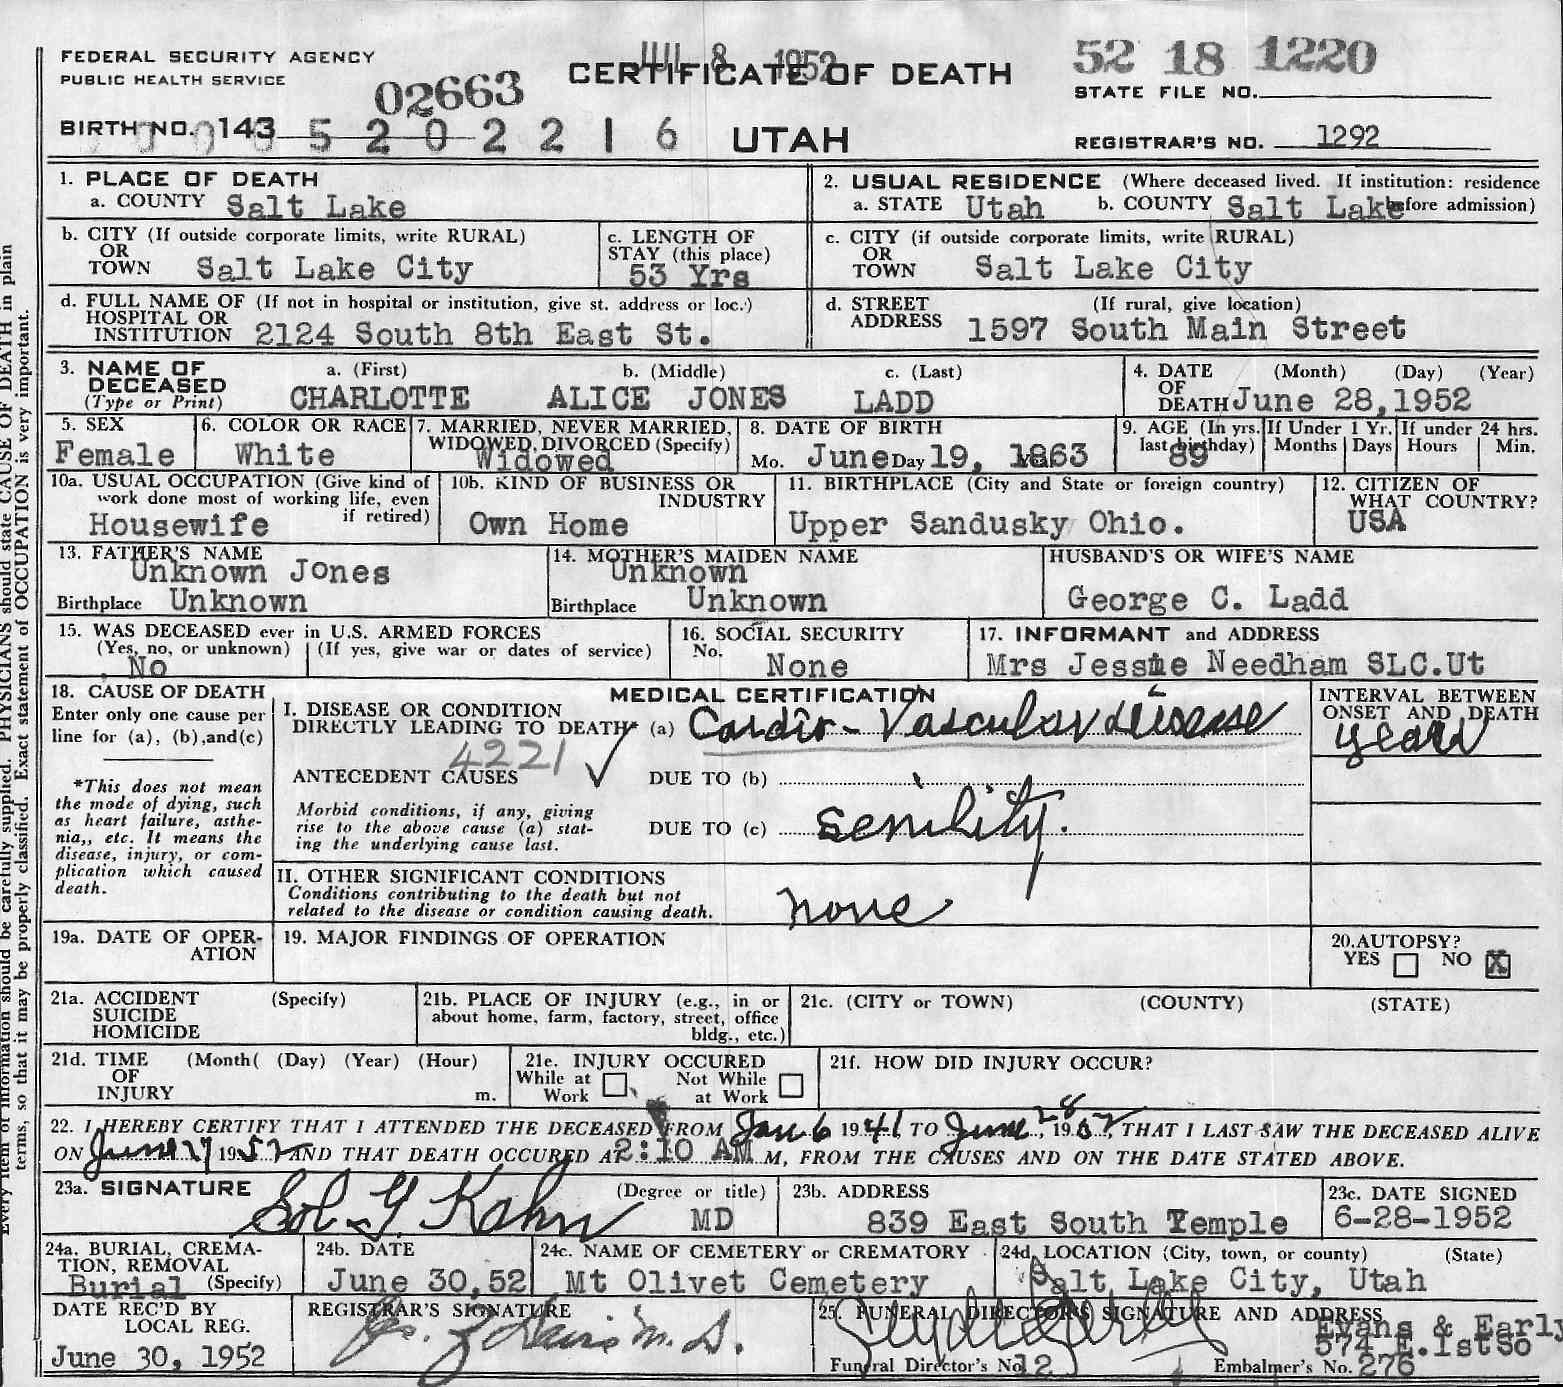 FEDERAL SECURITY AGENCY
PUBLIC HEALTH SERVICE
02663
JUL 8 1952
CERTIFICATE OF DEATH
UTAH
52 18 1220
STATE FILE NO.
BIRTH NO. 143 5 2 0 2 2 1 6
REGISTRAR'S NO. 1292
1. PLACE OF DEATH
a. COUNTY Salt Lake
2. USUAL RESIDENCE (Where deceased lived. If institution: residence before admission)
a. STATE Utah b. COUNTY Salt Lake
b. CITY (If outside corporate limits, write RURAL)
OR
TOWN Salt Lake City
c. LENGTH OF
STAY (this place)
53 Yrs
c. CITY (if outside corporate limits, write RURAL)
OR
TOWN Salt Lake City
d. FULL NAME OF (If not in hospital or institution, give st. address or loc.)
HOSPITAL OR
INSTITUTION 2124 South 8th East St.
d. STREET (If rural, give location)
ADDRESS 1597 South Main Street
3. NAME OF
DECEASED
(Type or Print)
a. (First) b. (Middle) c. (Last)
CHARLOTTE ALICE JONES LADD
4. DATE (Month) (Day) (Year)
OF
DEATH June 28, 1952
5. SEX
Female
6. COLOR OR RACE
White
7. MARRIED, NEVER MARRIED,
WIDOWED, DIVORCED (Specify)
Widowed
8. DATE OF BIRTH
Mo. June Day 19, 1863
9. AGE (In yrs.
last birthday)
89
If Under 1 Yr.
Months Days
If under 24 hrs.
Hours Min.
10a. USUAL OCCUPATION (Give kind of
work done most of working life, even
if retired)
Housewife
10b. KIND OF BUSINESS OR
INDUSTRY
Own Home
11. BIRTHPLACE (City and State or foreign country)
Upper Sandusky Ohio.
12. CITIZEN OF
WHAT COUNTRY?
USA
13. FATHER'S NAME
Unknown Jones
Birthplace Unknown
14. MOTHER'S MAIDEN NAME
Unknown
Birthplace Unknown
HUSBAND'S OR WIFE'S NAME
George C. Ladd
15. WAS DECEASED ever in U.S. ARMED FORCES
(Yes, no, or unknown) (If yes, give war or dates of service)
No
16. SOCIAL SECURITY
No.
None
17. INFORMANT and ADDRESS
Mrs Jessie Needham SLC.Ut
18. CAUSE OF DEATH
Enter only one cause per
line for (a), (b), and (c)
*This does not mean
the mode of dying, such
as heart failure, asthe-
nia,, etc. It means the
disease, injury, or com-
plication which caused
death.
MEDICAL CERTIFICATION
I. DISEASE OR CONDITION
DIRECTLY LEADING TO DEATH* (a) Cardio-Vascular disease
4221
ANTECEDENT CAUSES
DUE TO (b)
Morbid conditions, if any, giving
rise to the above cause (a) stat-
ing the underlying cause last.
DUE TO (c) Senility.
INTERVAL BETWEEN
ONSET AND DEATH
years
II. OTHER SIGNIFICANT CONDITIONS
Conditions contributing to the death but not
related to the disease or condition causing death.
none
19a. DATE OF OPER-
ATION
19. MAJOR FINDINGS OF OPERATION
20. AUTOPSY?
YES NO X
21a. ACCIDENT (Specify)
SUICIDE
HOMICIDE
21b. PLACE OF INJURY (e.g., in or
about home, farm, factory, street, office
bldg., etc.)
21c. (CITY or TOWN) (COUNTY) (STATE)
21d. TIME (Month( (Day) (Year) (Hour)
OF
INJURY m.
21e. INJURY OCCURED
While at Work Not While at Work
21f. HOW DID INJURY OCCUR?
22. I HEREBY CERTIFY THAT I ATTENDED THE DECEASED FROM Jan 6 1941, TO June 28, 1952, THAT I LAST SAW THE DECEASED ALIVE
ON June 27 1952 AND THAT DEATH OCCURED AT 2:10 AM M, FROM THE CAUSES AND ON THE DATE STATED ABOVE.
23a. SIGNATURE (Degree or title)
Sol G Kahn MD
23b. ADDRESS
839 East South Temple
23c. DATE SIGNED
6-28-1952
24a. BURIAL, CREMA-
TION, REMOVAL
Burial (Specify)
24b. DATE
June 30, 52
24c. NAME OF CEMETERY or CREMATORY
Mt Olivet Cemetery
24d. LOCATION (City, town, or county) (State)
Salt Lake City, Utah
DATE REC'D BY
LOCAL REG.
June 30, 1952
REGISTRAR'S SIGNATURE
Davis M.D.
25. FUNERAL DIRECTOR'S SIGNATURE AND ADDRESS
Evans & Early
574 E. 1st So
Funeral Director's No. 12 Embalmer's No. 276
Every item of information should be carefully supplied. PHYSICIANS should state CAUSE OF DEATH in plain
terms, so that it may be properly classified. Exact statement of OCCUPATION is very important.